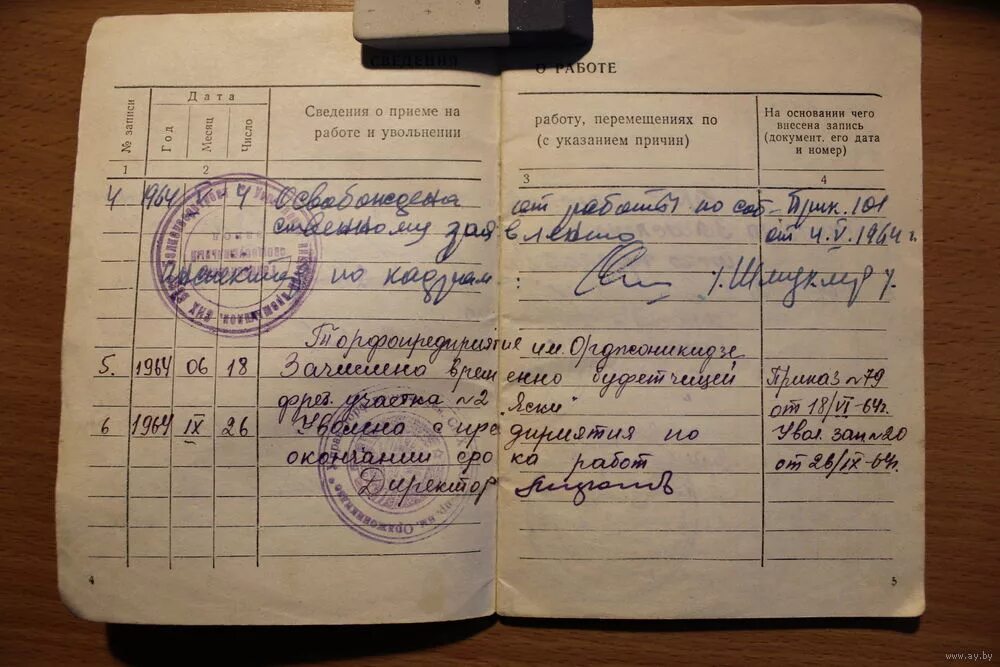 СВЕДЕНИЯ О РАБОТЕ
№ записи
Дата
Год
Месяц
Число
Сведения о приеме на
работе и увольнении
работу, перемещениях по
(с указанием причин)
На основании чего
внесена запись
(документ, его дата
и номер)
1 2 3 4
4 1964 V 4 Освобождена от работы по соб- Прик. 101
ственному заявлению от 4.V.1964 г.
по кадрам: /Шмуклер/.
Торфопредприятия им. Орджоникидзе
5. 1964 06 18 Зачислено временно буфетчицей Приказ №79
фрез. участка №2 "Яски" от 18/VI-64г.
6 1964 IX 26 Уволено с предприятия по Увол. зап №20
окончании срока работ от 26/IX-64г.
Директор
4
5
www.ay.by